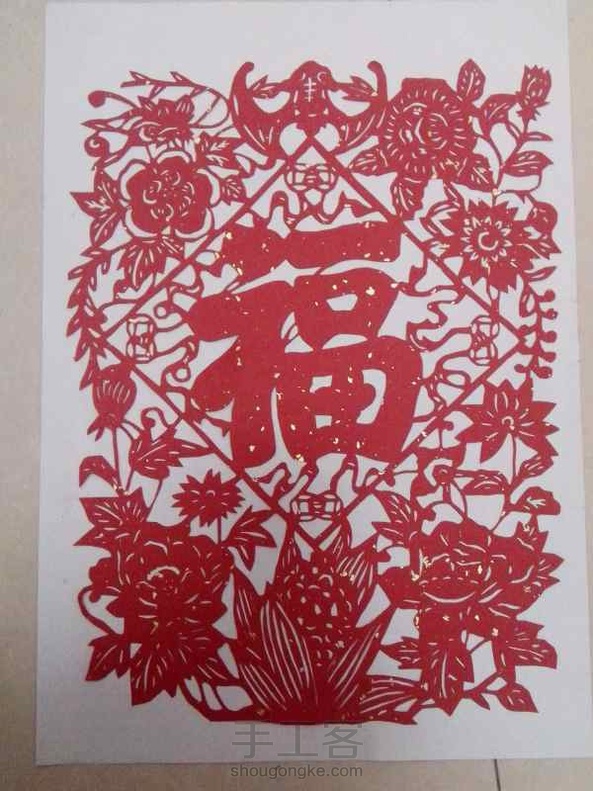 福
手工客
shougongke.com